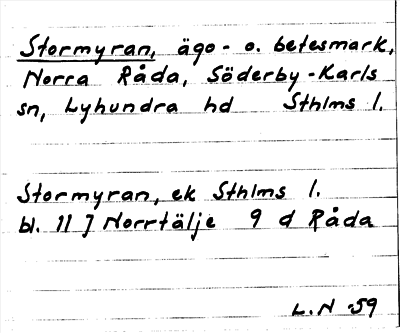 Stormyran, ägo- o. betesmark,
Norra Råda, Söderby-Karls
sn, Lyhundra hd Sthlms l.
Stormyran, ek Sthlms l.
bl. 11 J Norrtälje 9 d Råda
L.N -59